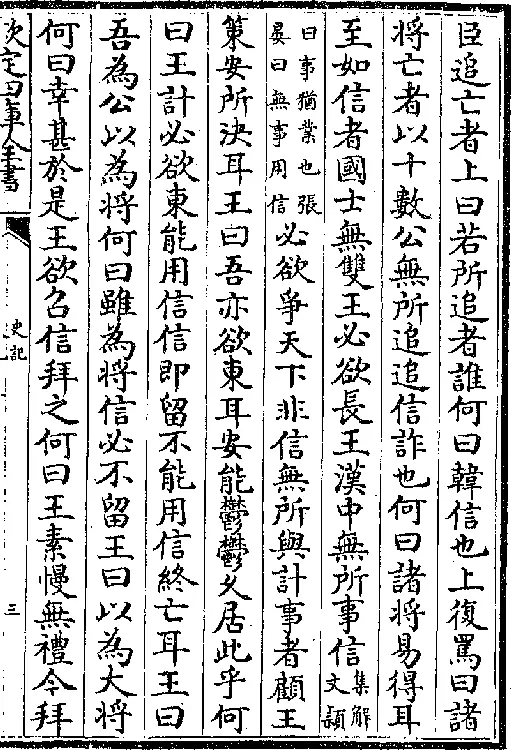 臣追亡者上曰若所追者誰何曰韓信也上復罵曰諸
將亡者以十數公無所追追信詐也何曰諸將易得耳
至如信者國士無雙王必欲長王漢中無所事信集解文穎
曰事猶業也張晏曰無事用信必欲爭天下非信無所與計事者顧王
策安所決耳王曰吾亦欲東耳安能鬱鬱乆居此乎何
曰王計必欲東能用信信即留不能用信終亡耳王曰
吾為公以為將何曰雖為將信必不留王曰以為大將
何曰幸甚於是王欲召信拜之何曰王素慢無禮今拜
欽定四庫全書
史記
三